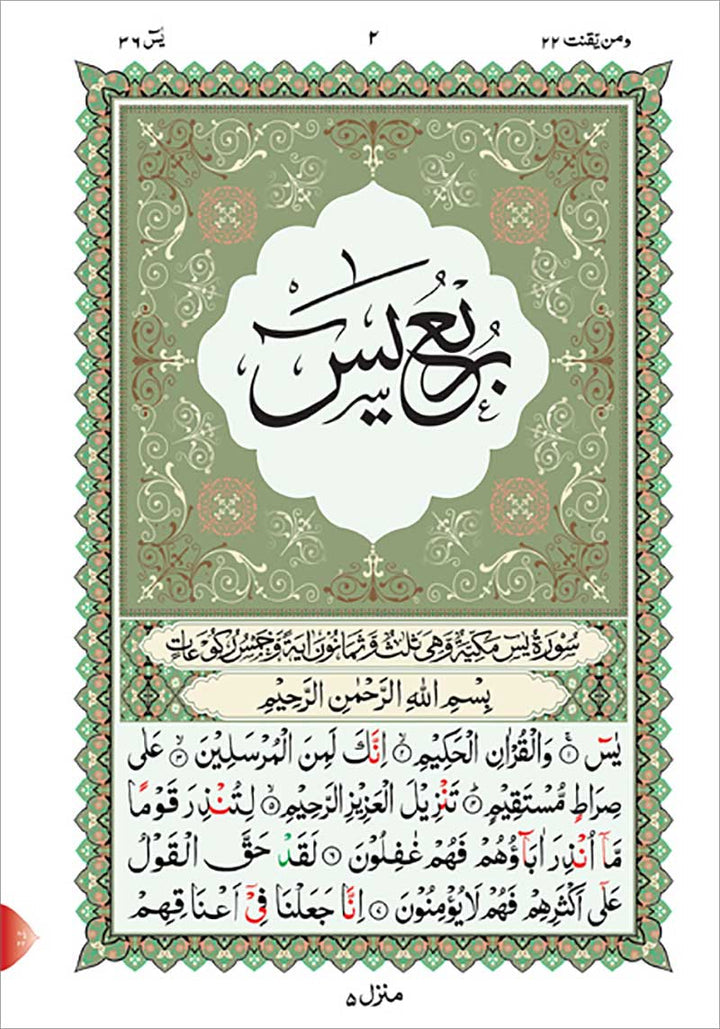 ومن یقنت ۲۲
۲
یٰسٓ ۳۶
ربع یٰسٓ
سُوْرَةُ يٰسٓ مَكِّيَّةٌ وَّهِىَ ثَلٰثٌ وَّثَمَانُوْنَ اٰيَةً وَّخَمْسُ رُكُوْعَاتٍ
بِسْمِ اللهِ الرَّحْمٰنِ الرَّحِيْمِ
يٰسٓ ۝۱ وَالْقُرْاٰنِ الْحَكِيْمِ ۝۲ اِنَّكَ لَمِنَ الْمُرْسَلِيْنَ ۝۳ عَلٰى
صِرَاطٍ مُّسْتَقِيْمٍ ۝۴ تَنْزِيْلَ الْعَزِيْزِ الرَّحِيْمِ ۝۵ لِتُنْذِرَ قَوْمًا
مَّاۤ اُنْذِرَ اٰبَآؤُهُمْ فَهُمْ غٰفِلُوْنَ ۝۶ لَقَدْ حَقَّ الْقَوْلُ
عَلٰۤى اَكْثَرِهِمْ فَهُمْ لَا يُؤْمِنُوْنَ ۝۷ اِنَّا جَعَلْنَا فِىْۤ اَعْنَاقِهِمْ
منزل ۵